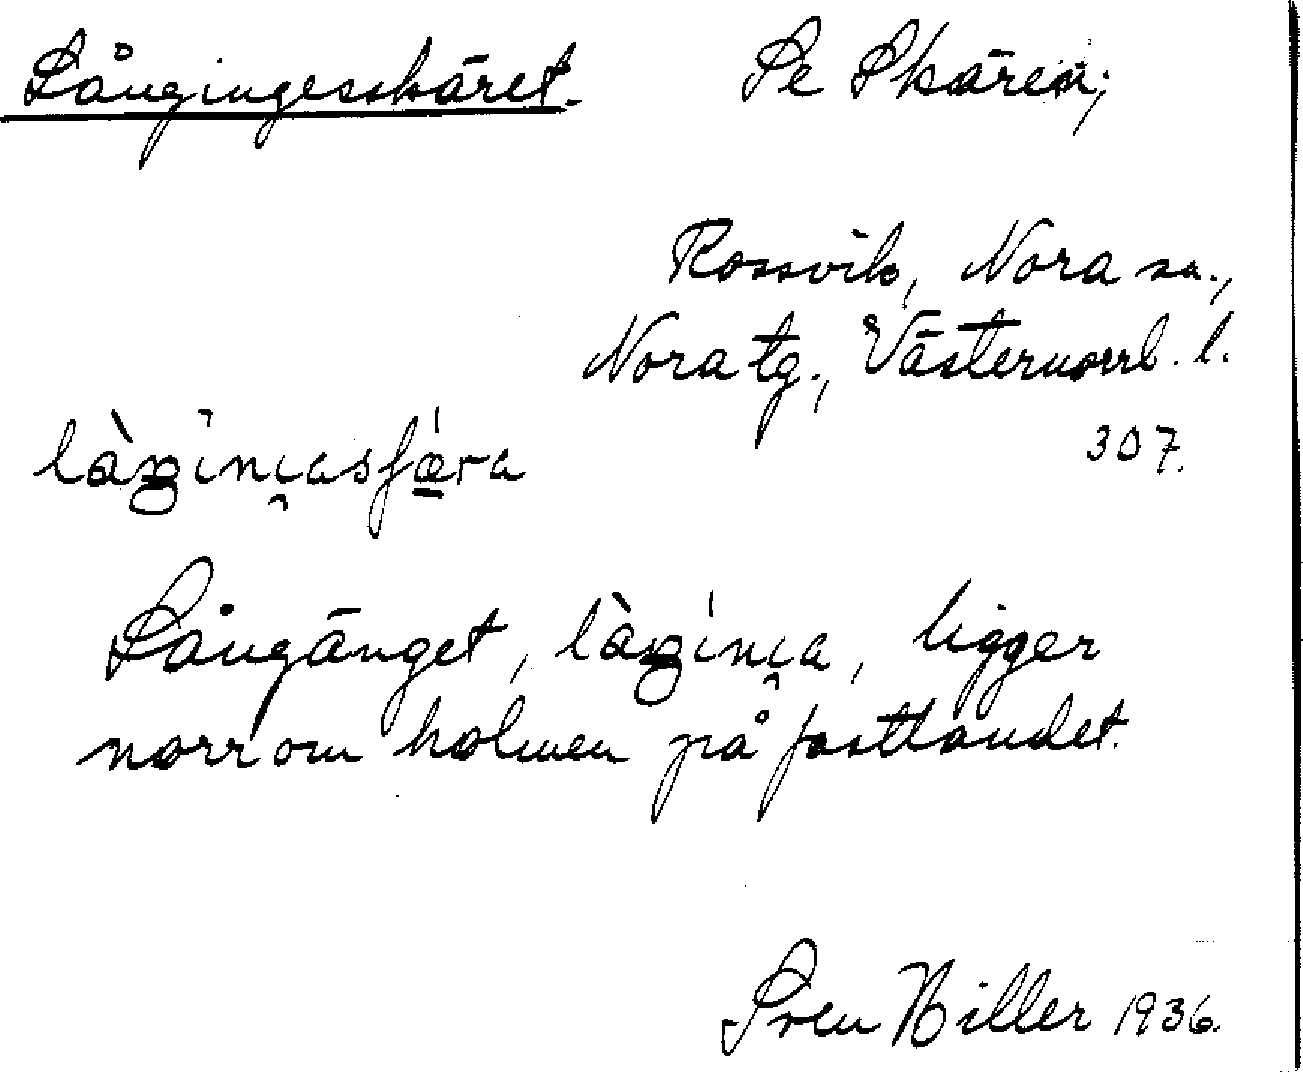 Långingesskäret.
Se Skären;
Rossvik, Nora sn.,
Nora tg., Västernorrl. l.
307.
Långänget, ligger
norr om holmen på fastlandet.
Sven Hiller 1936.